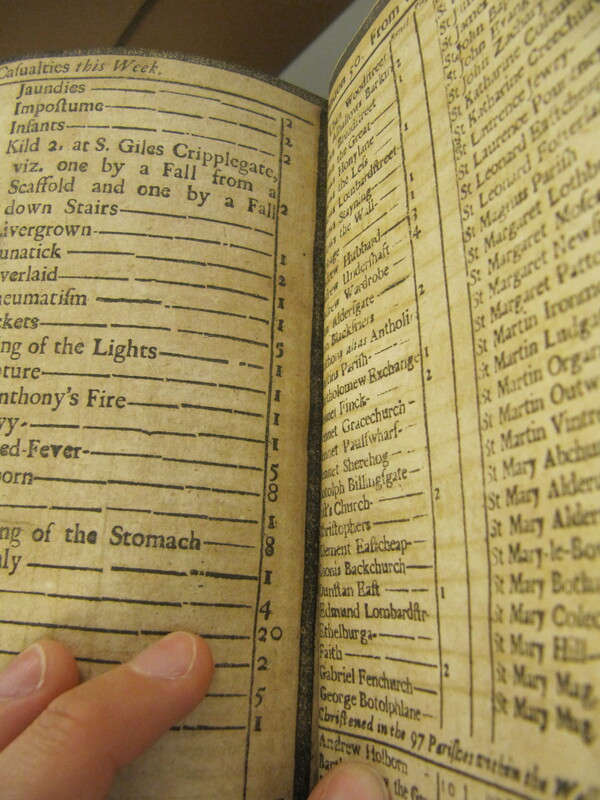 Casualties this Week.
Jaundies 2
Impoſtume 2
Infants 2
Kild 2. at S. Giles Cripplegate,
viz. one by a Fall from a
Scaffold and one by a Fall
down Stairs 2
Livergrown 1
unatick 2
verlaid 1
heumatiſm 1
ckets 5
ing of the Lights 1
pture 1
nthony's Fire 1
vy
ed-Fever 5
born 8
1
ng of the Stomach 8
ly 1
4
20
2
5
1
From
Woodſtreet
Breadſtreet
the Great
Honylane
the Leſs
Lombardſtreet
Stayning
the Wall
Hubbard
Underſhaft
Wardrobe
Alderſgate 2
Blackfriers
thony alias Antholin
Pariſh
tholomew Exchange 1
Finck 2
nnet Gracechurch
nnet Paulſwharf
nnet Sherehog
otolph Billingſgate
Church 2
hriſtophers
lement Eaſtcheap
ionis Backchurch
Dunſtan Eaſt 1
Edmund Lombardſtr
Ethelburga
Faith 2
Gabriel Fenchurch
George Botolphlane
Chriſtened in the 97 Pariſhes within the
Andrew Holborn
St John Zachary
St Katharine Coleman
St Katharine Creechurch
St Laurence Jewry
St Laurence Pountney
St Leonard Eaſtcheap
St Leonard Foſterlane
St Magnus Pariſh
St Margaret Lothb
St Margaret Moſes
St Margaret Newf
St Margaret Patto
St Martin Ironmo
St Martin Ludga
St Martin Organ
St Martin Outw
St Martin Vintre
St Mary Abchur
St Mary Alderm
St Mary Alder
St Mary-le-Bow
St Mary Botha
St Mary Colec
St Mary Hill
St Mary Mag.
St Mary Mag.